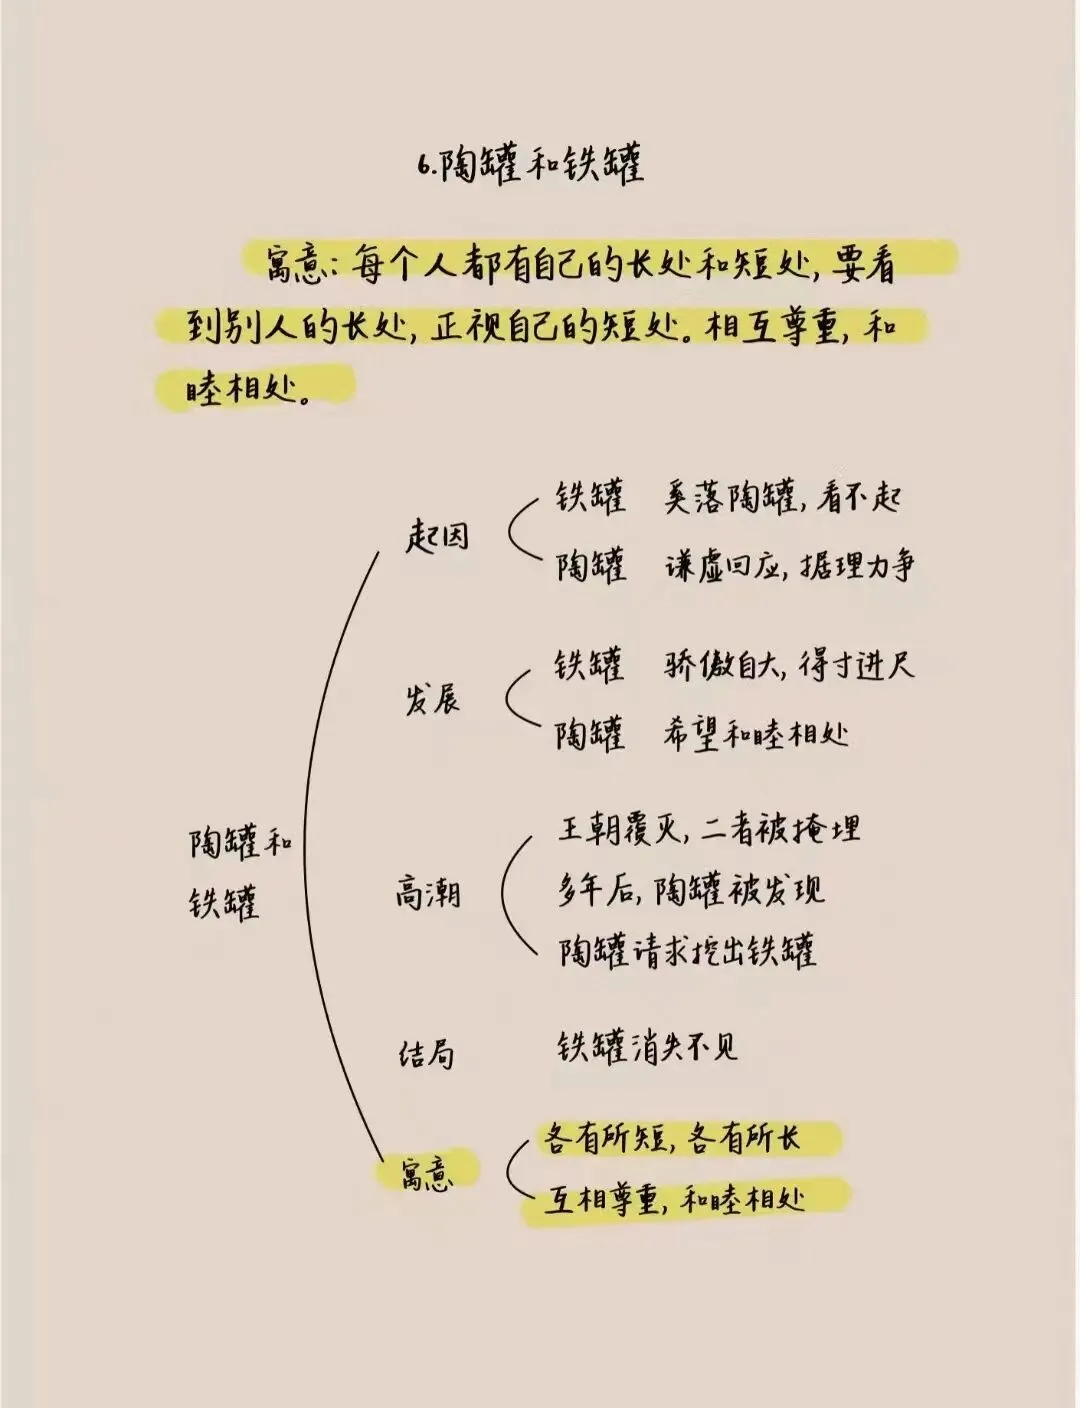 6.陶罐和铁罐
寓意:每个人都有自己的长处和短处,要看
到别人的长处,正视自己的短处。相互尊重,和
睦相处。
起因
铁罐 奚落陶罐,看不起
陶罐 谦虚回应,据理力争
发展
铁罐 骄傲自大,得寸进尺
陶罐 希望和睦相处
陶罐和
铁罐
高潮
王朝覆灭,二者被掩埋
多年后,陶罐被发现
陶罐请求挖出铁罐
结局
铁罐消失不见
寓意
各有所短,各有所长
互相尊重,和睦相处